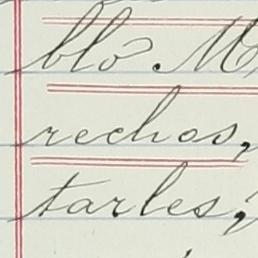 bló. M
rechos,
tarles,